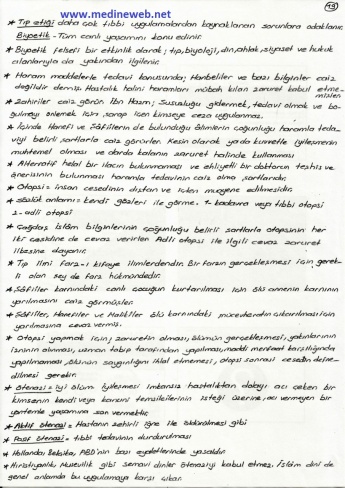 www.medineweb.net
* Tıp etiği daha çok tıbbi uygulamalardan kaynaklanan sorunlara odaklanır.
Biyoetik - Tüm canlı yaşamını konu edinir.
* Biyoetik felsefi bir etkinlik olarak; tıp, biyoloji, din, ahlak, siyaset ve hukuk
alanlarıyla da yakından ilgilenir.
* Haram maddelerle tedavi konusunda; Hanbeliler ve bazı bilginler caiz
değildir demiş. Hastalık halini haramları mübah kılan zaruret kabul etme-
mişler
* Zahiriler caiz görür. İbn Hazm; Susuzluğu gidermek, tedavi olmak ve bo-
ğulmayı önlemek için, şarap içen kimseye ceza uygulanmaz.
* İçinde Hanefi ve Şâfiilerin de bulunduğu âlimlerin çoğunluğu haramla teda-
viyi belirli şartlarla caiz görürler. Kesin olarak ya da kuvvetle iyileşmenin
muhtemel olması ve darda kalanın zaruret halinde kullanması
* Alternatif helal bir ilacın bulunmaması ve ehliyetli bir doktorun teşhis ve
önerisinin bulunması haramla tedavinin caiz olma şartlarıdır;
* Otopsi = insan cesedinin dıştan ve içten muayene edilmesidir.
* Sözlük anlamı = kendi gözleri ile görme. 1- kadavra veya tıbbi otopsi
2- adli otopsi
* Çağdaş İslâm bilginlerinin çoğunluğu belirli şartlarla otopsinin her
iki çeşidine de cevaz verirler Adli otopsi ile ilgili cevaz zaruret
ilkesine dayanır.
* Tıp ilmi farz-ı kifaye ilimlerdendir. Bir farzın gerçekleşmesi için gerek-
li olan şey de farz hükmündedir.
* Şâfiiler karnındaki canlı çocuğun kurtarılması için ölü annenin karnının
yarılmasını caiz görmüşler.
* Şâfiiler, Hanefiler ve Malikiler ölü karnındaki mücevheratın çıkarılması için
yarılmasına cevaz vermiş.
* Otopsi yapmak için; zaruretin olması, ölümün gerçekleşmesi, yakınlarının
izninin alınması, uzman tabip tarafından yapılması, maddi menfaat karşılığında
yapılmaması, ölünün saygınlığını ihlal etmemesi, otopsi sonrası cesedin defne-
dilmesi gerekir.
* Ötenazi = İyi ölüm iyileşmesi imkansız hastalıktan dolayı acı çeken bir
kimsenin kendi veya kanuni temsilcilerinin isteği üzerine, acı vermeyen bir
yöntemle yaşamına son vermektir.
* Aktif ötenazi = Hastanın zehirli iğne ile öldürülmesi gibi
* Pasif ötenazi = tıbbi tedavinin durdurulması
* Hollanda Belçika, ABD'nin bazı eyaletlerinde yasaldır.
* Hıristiyanlık Musevilik gibi semavi dinler ötenaziyi kabul etmez. İslâm dini de
genel anlamda bu uygulamaya karşı çıkar.